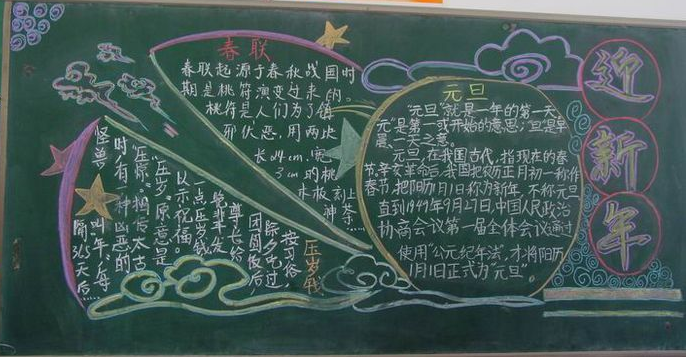 迎新年
春联
春联起源于春秋战国时
期是桃符演变过来的。
桃符是人们为了镇
邪伏恶,用两块
长24cm,宽
3cm的桃
木板刻上
神荼……
元旦
"元旦"就是一年的第一天。
元"是第一或开始的意思;旦"是早
晨、一天之意。
元旦,在我国古代,指现在的春
节,辛亥革命后,我国把农历正月初一称作
春节,把阳历1月1日称为新年,不称元旦
直到1949年9月27日,中国人民政治
协商会议第一届全体会议通过
使用"公元纪年法",才将阳历
1月1日正式为"元旦"。
压岁钱
按习俗,
除夕吃过
团圆饭后
尊长已给
晚辈分发
一点压岁钱
以示祝福。
"压岁"原意是
"压惊"相传太古
时,有一种凶恶的
怪兽
叫"年",每
隔365天后……